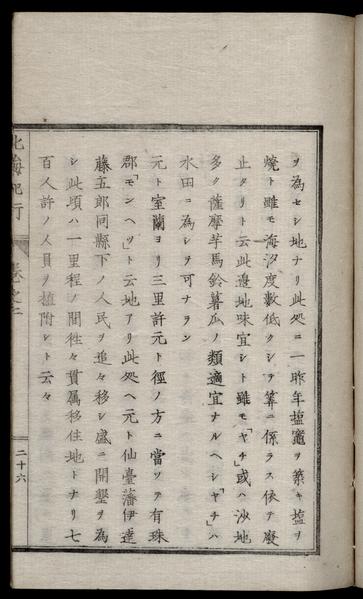 ヲ為セシ地ナリ此処ニ一昨年塩竈ヲ築キ塩ヲ
焼ト雖モ海汐度数低クシテ筭ニ係ラス依テ廢
止タリト云此邉地味宜シト雖モ「ヤチ」或ハ沙地
多ク薩摩芋馬鈴薯瓜ノ類適宜ナルヘシ「ヤチ」ハ
水田ニ為シヲ可ナラン
元ト室蘭ヨリ三里許元ト徑ノ方ニ當ツテ有珠
郡「モンヘツ」ト云地アリ此処ヘ元ト仙臺藩伊達
藤五郎同縣下ノ人民ヲ追々移シ盛ニ開墾ヲ為
シ此頃ハ一里程ノ間徃々貫属移住地トナリ七
百人許ノ人員ヲ植附シト云々
北海紀行
巻之二
二十六